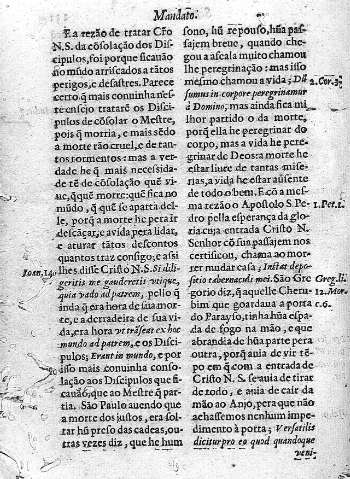 Mandato.
E a rezão de tratar Cr̃o
N.S. da cõsolação dos Dis-
cipulos, foi porque ficauão
no mũdo arriscados a tãtos
perigos, e desastres. Parece
certo q̃ mais conuinha nes-
te ensejo tratarẽ os Disci-
pulos de cõsolar o Mestre,
pois q̃ morria, e mais sẽdo
a morte tão cruel, e de tan-
tos tormentos: mas a ver-
dade he q̃ mais necessida-
de tẽ de cõsolação quẽ vi-
ue, q̃ quẽ morre: quẽ fica no
mũdo, q̃ quẽ se aparta del-
le, porq̃ a morte he pera ir
descãçar, e a vida pera lidar,
e aturar tãtos descontos
quantos traz consigo; e assi
Ioan. 14.
lhes disse Cristo N.S. Si di-
geritis me gauderetis vtique,
quia vado ad patrem, pello q̃
inda q̃ era hora de sua mor-
te, e a derradeira de sua vi-
da, era hora vt trãseat ex hoc
mundo ad patrem, e os Dis-
cipulos; Erant in mundo, e por
isso mais conuinha conso-
lação aos Discipulos que fi-
cauão, que ao Mestre q̃ par-
tia. São Paulo auendo que
a morte dos justos, era sol-
tar hũ preso das cadeas, ou-
tras vezes diz, que he hum
sono, hũ repouso, hũa pas-
sajem breue, quando che-
gou a ascala muito chamou
lhe peregrinação: mas isso
mesmo chamou a vida; Dũ
2. Cor. 3.
sumus in corpore peregrinamur
à Domino; mas ainda fica mi-
lhor partido o da morte,
porq̃ ella he peregrinar do
corpo, mas a vida he pere-
grinar de Deos: a morte he
estar liure de tantas mise-
rias, a vida he estar ausente
de todo o bem. E cõ a mes-
ma rezão o Apostolo S. Pe-
1. Pet. 1.
dro pella esperança da glo-
ria cuja entrada Cristo N.
Senhor cõ sua passajem nos
certificou, chama ao mor-
rer mudar casa; Instat depo-
sitio tabernaculi mei. São Gre
Greg. li.
gorio diz, q̃ aquelle Cheru-
12. Mor.
bim que goardaua a porta
c. 6.
do Parayso, tinha hũa espa-
da de fogo na mão, e que
abrandia de hũa parte pera
outra, porq̃ auia de vir tẽ-
po em q̃ com a entrada de
Cristo N.S. se auia de tirar
de todo, e auia de cair da
mão ao Anjo, pera que não
achassemos nenhum impe-
dimento à porta; Versatilis
dicitur pro eo quod quandoque
veni-